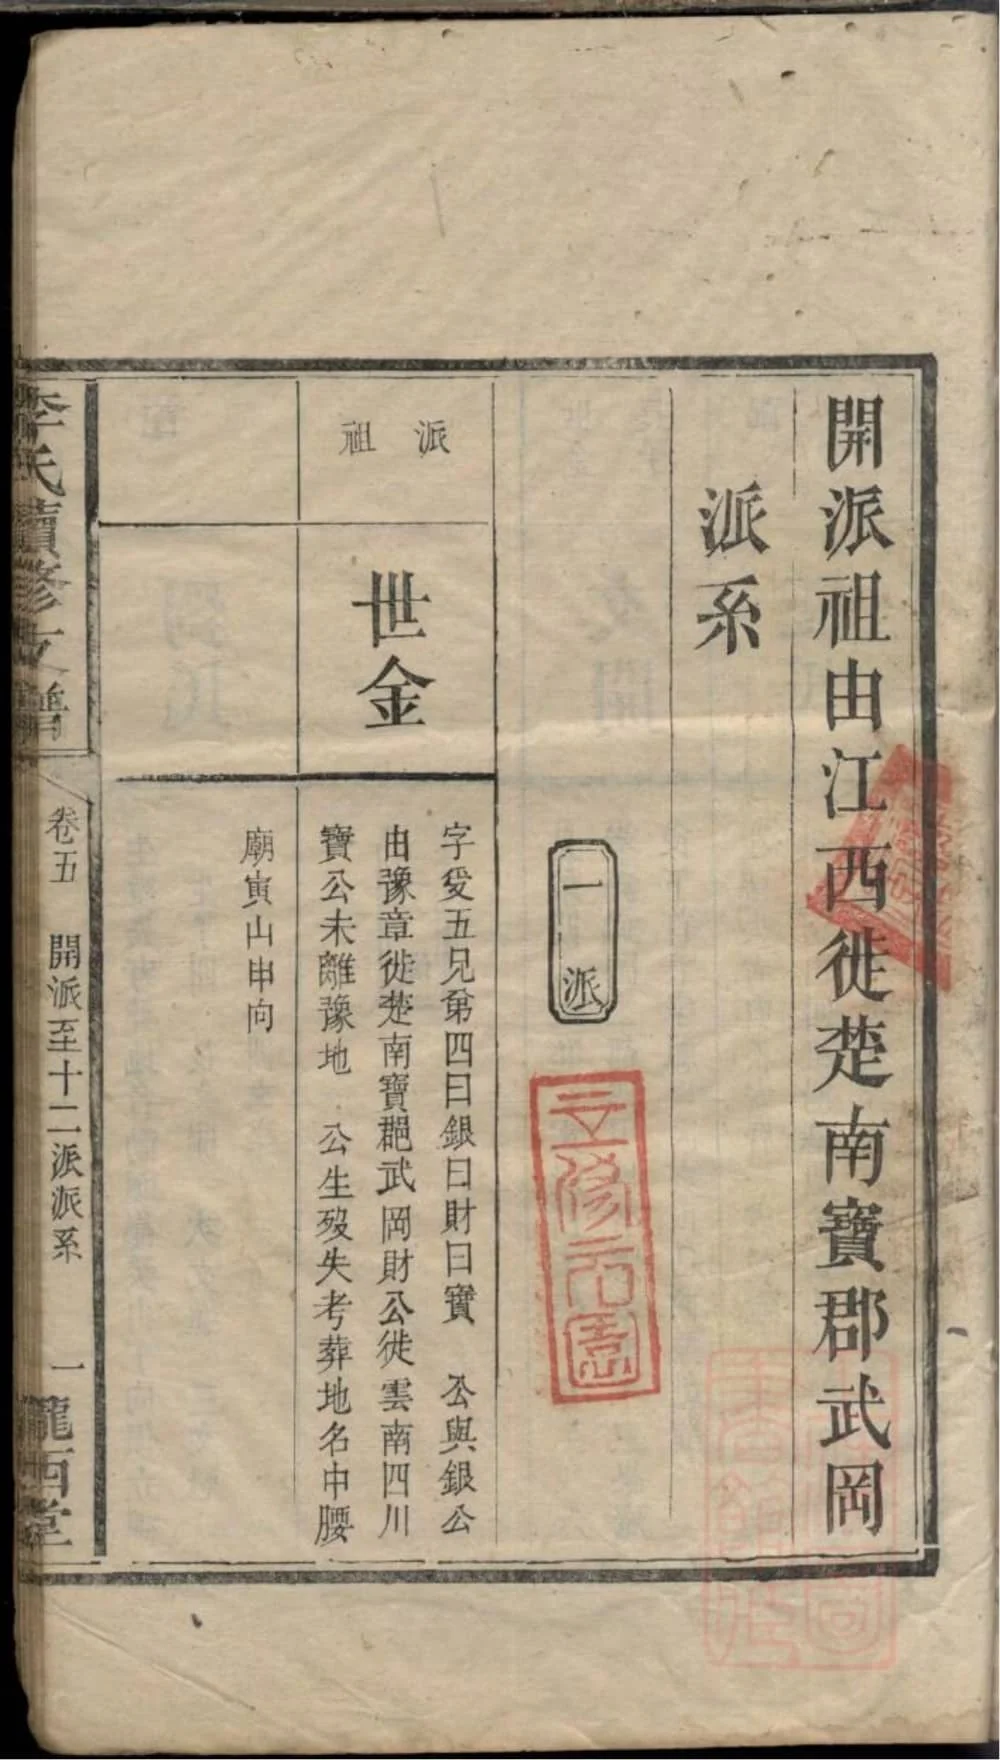 開派祖由江西徙楚南寶郡武岡
派系
一派
派祖
世金
字爰五兄弟四曰銀曰財曰寶 公與銀公
由豫章徙楚南寶郡武岡財公徙雲南四川
寶公未離豫地 公生歿失考葬地名中腰
廟寅山申向
李氏續修支譜
卷五 開派至十二派派系 一
隴西堂